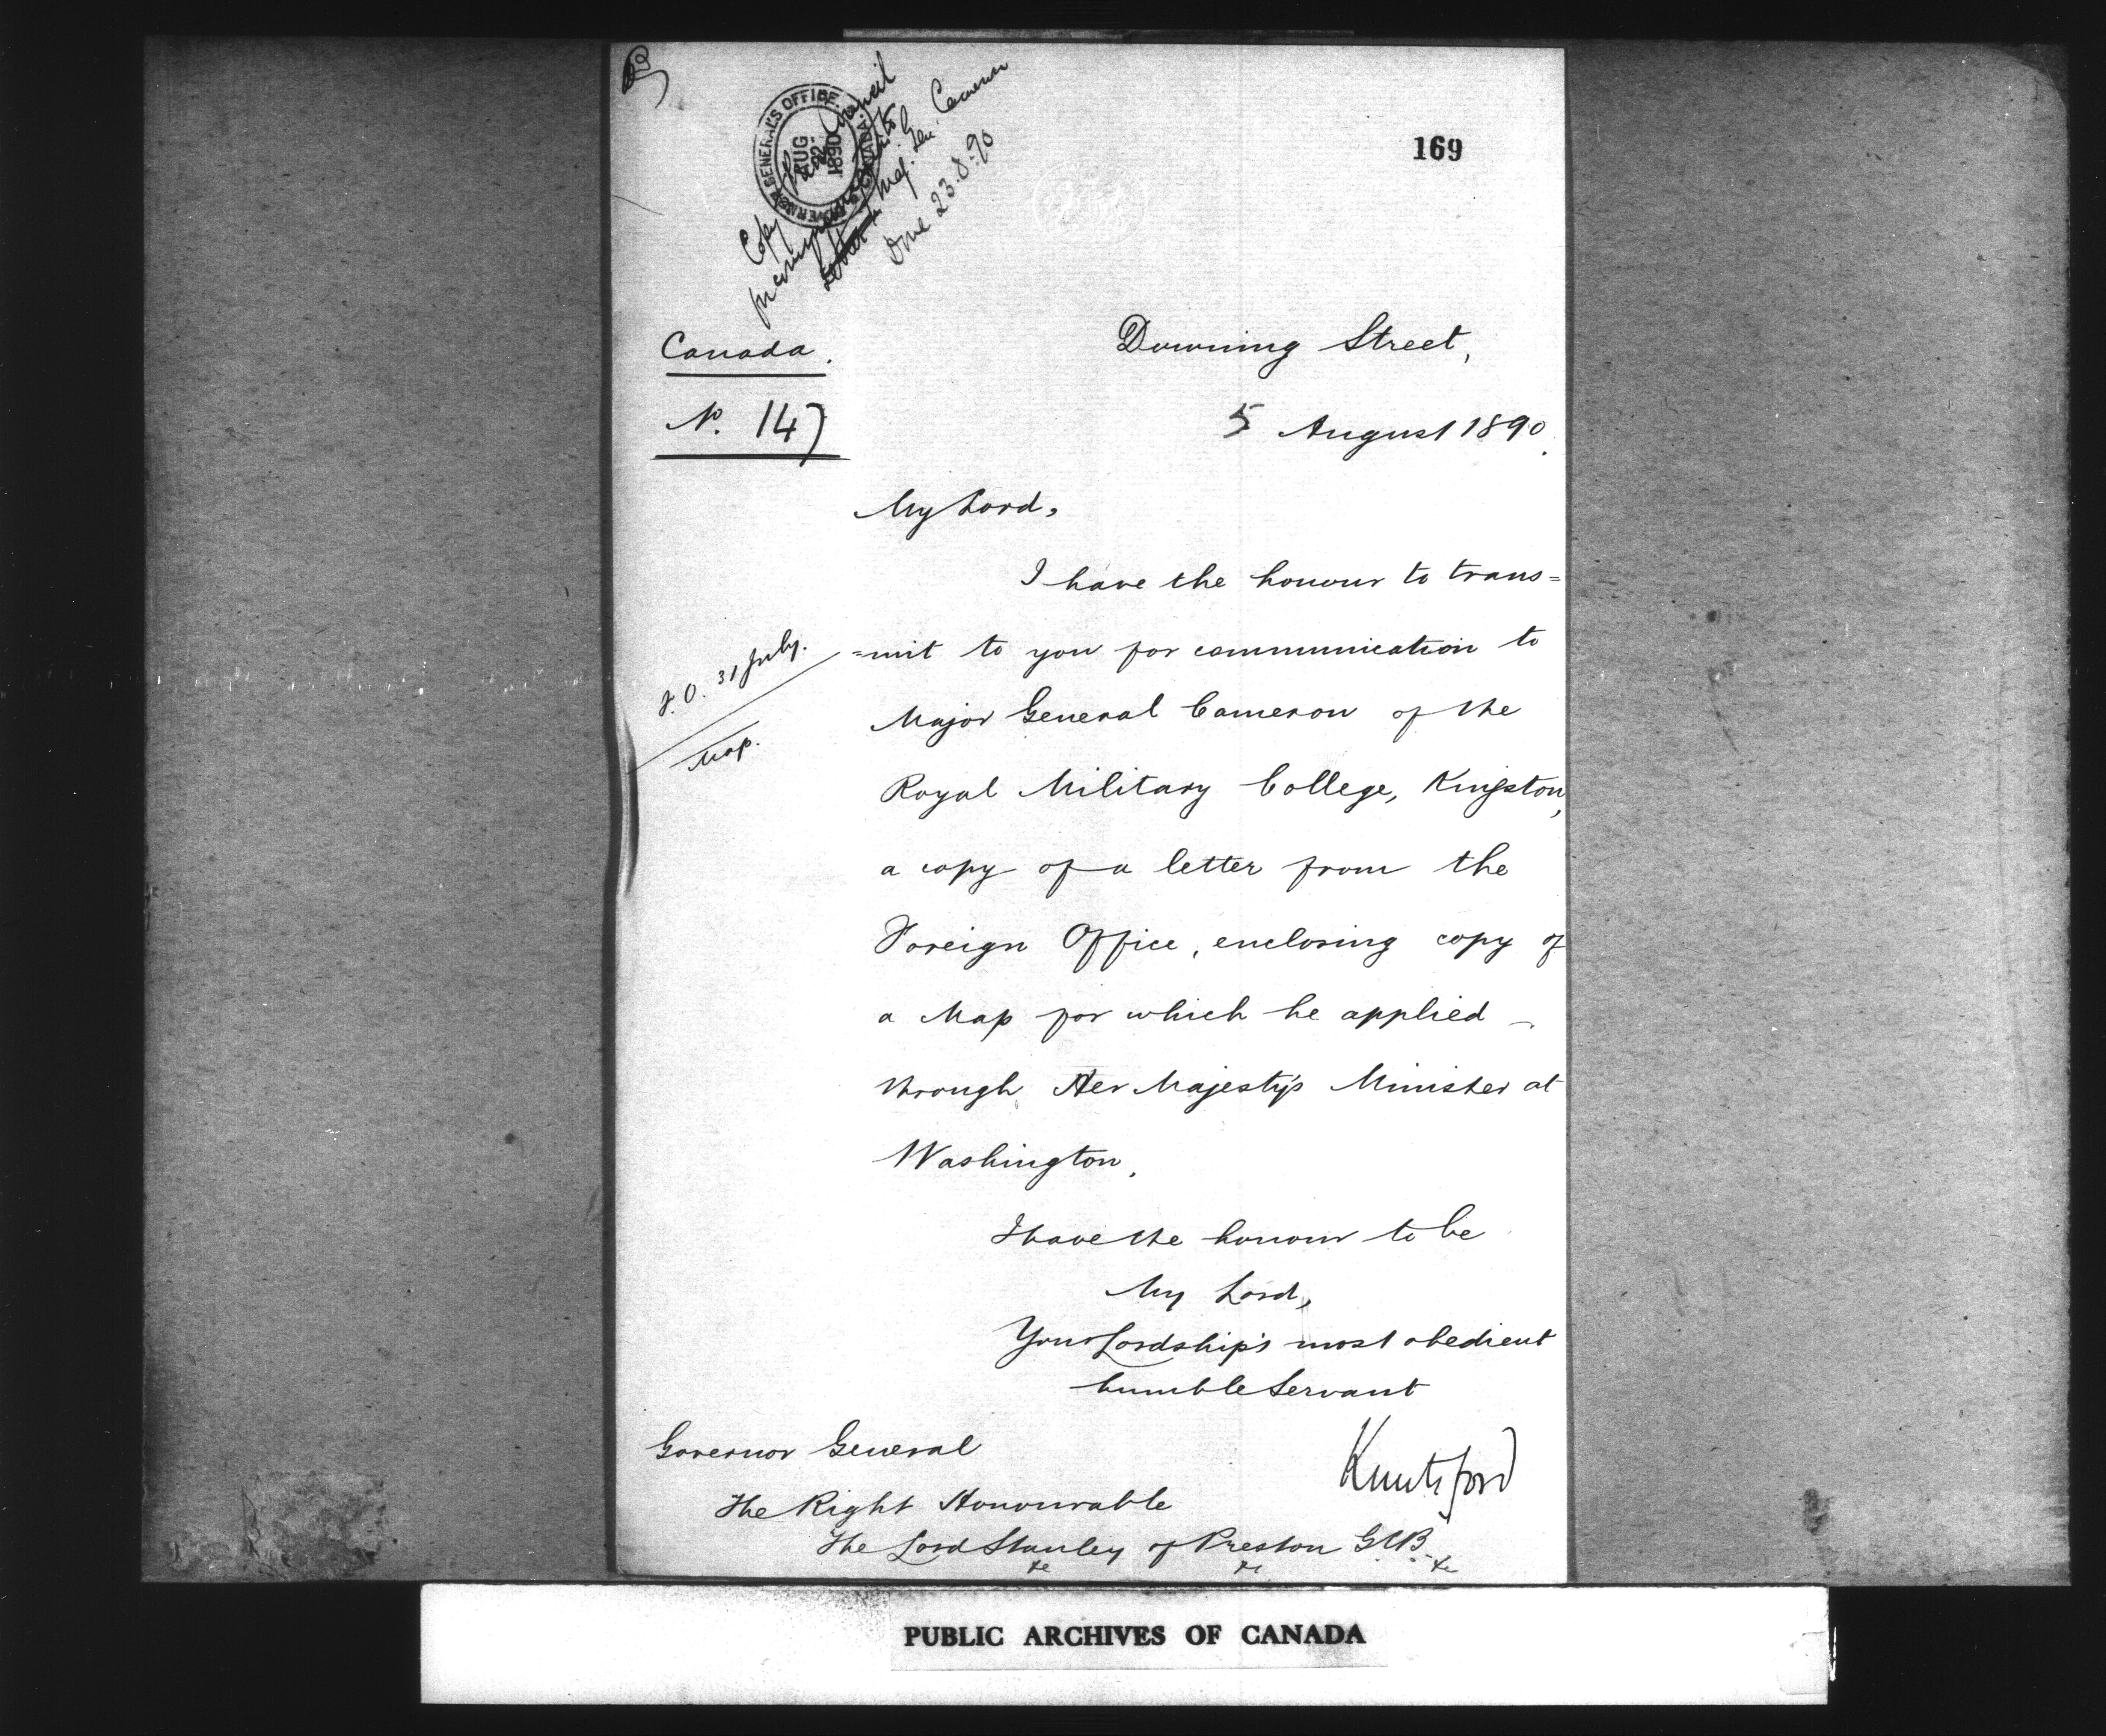 GOVERNOR GENERAL'S OFFICE.
AUG.
22
1890
CANADA.
Copy Privy Council
Maj. Gen. Cameron
Done 23.8.90
169
Canada.
Downing Street,
No. 147
5 August 1890.
My Lord,
I have the honour to trans=
F.O. 31 July.
=mit to you for communication to
Major General Cameron of the
Map.
Royal Military College, Kingston,
a copy of a letter from the
Foreign Office, enclosing copy of
a Map for which he applied
through Her Majesty's Minister at
Washington.
I have the honour to be
My Lord,
Your Lordship's most obedient
humble Servant
Knutsford
Governor General
The Right Honourable
The Lord Stanley of Preston GCB
&c &c &c
PUBLIC ARCHIVES OF CANADA